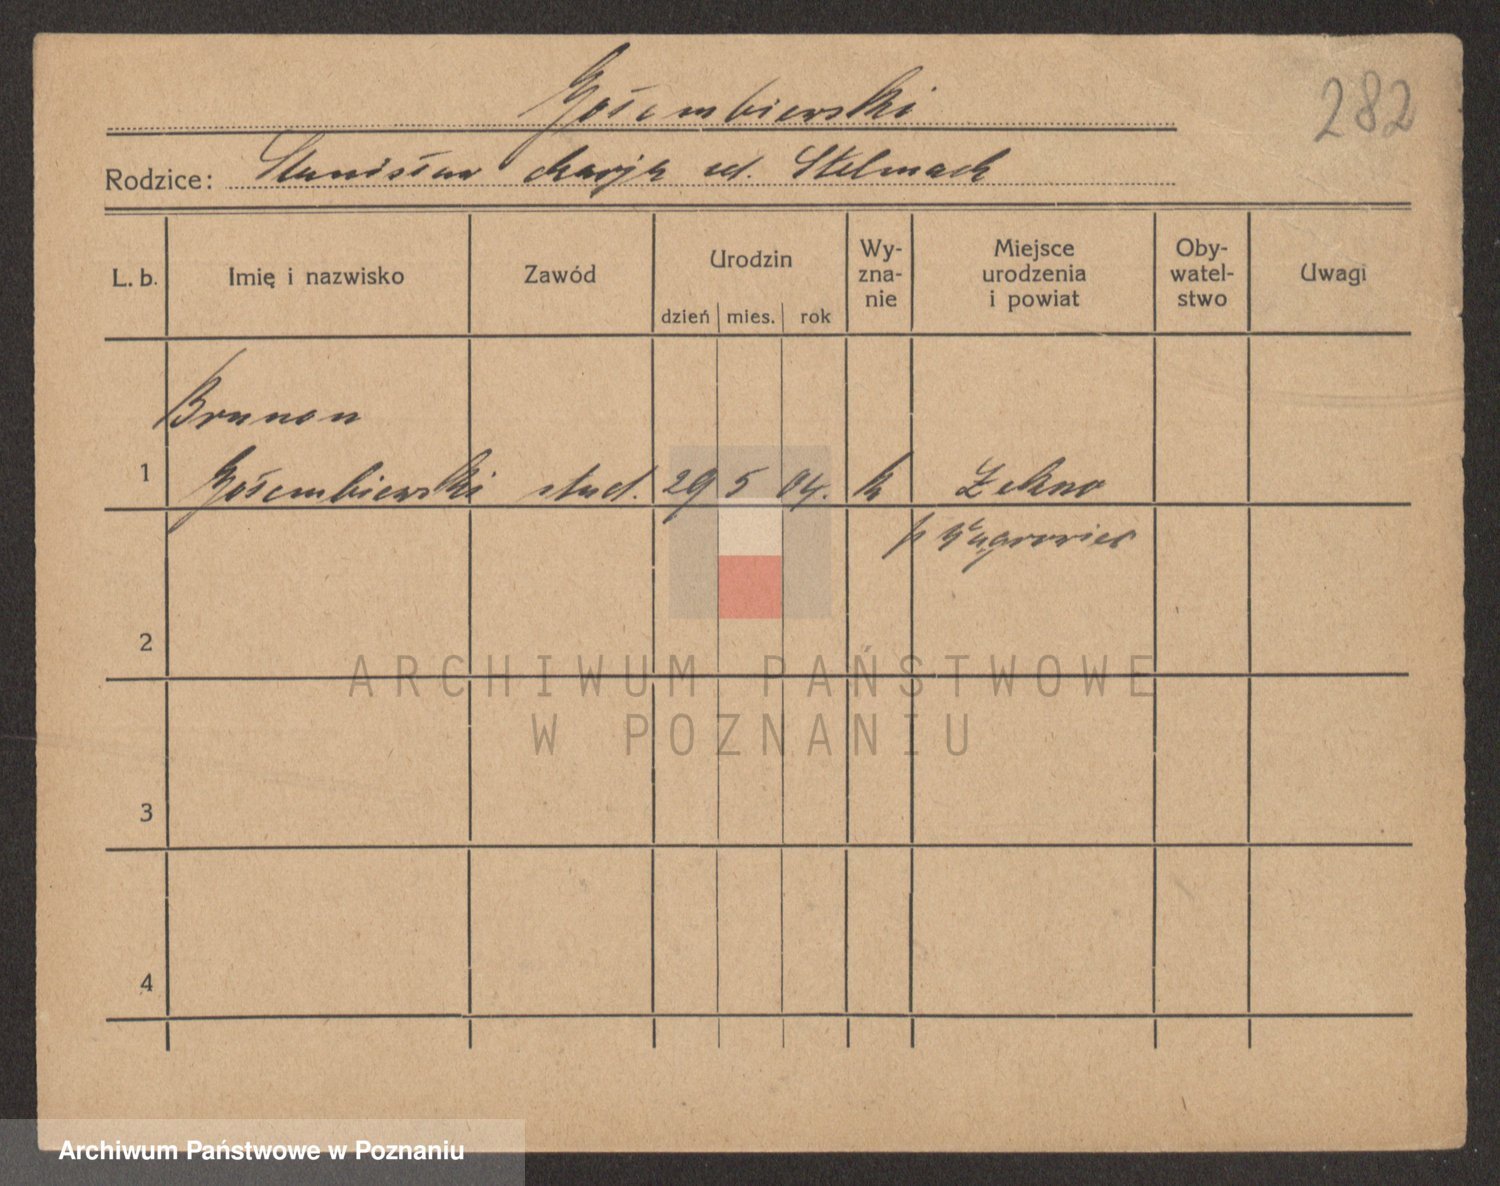 Gołembiewski
282
Rodzice: Stanisław Marja ud. Stelmach
L. b. Imię i nazwisko Zawód Urodzin Wy-zna-nie Miejsce urodzenia i powiat Oby-watel-stwo Uwagi
dzień mies. rok
Brunon
1 Gołembiewski stud. 29 5 04. k Łekno
p Wągrowiec
2
ARCHIWUM PAŃSTWOWE
W POZNANIU
3
4
Archiwum Państwowe w Poznaniu